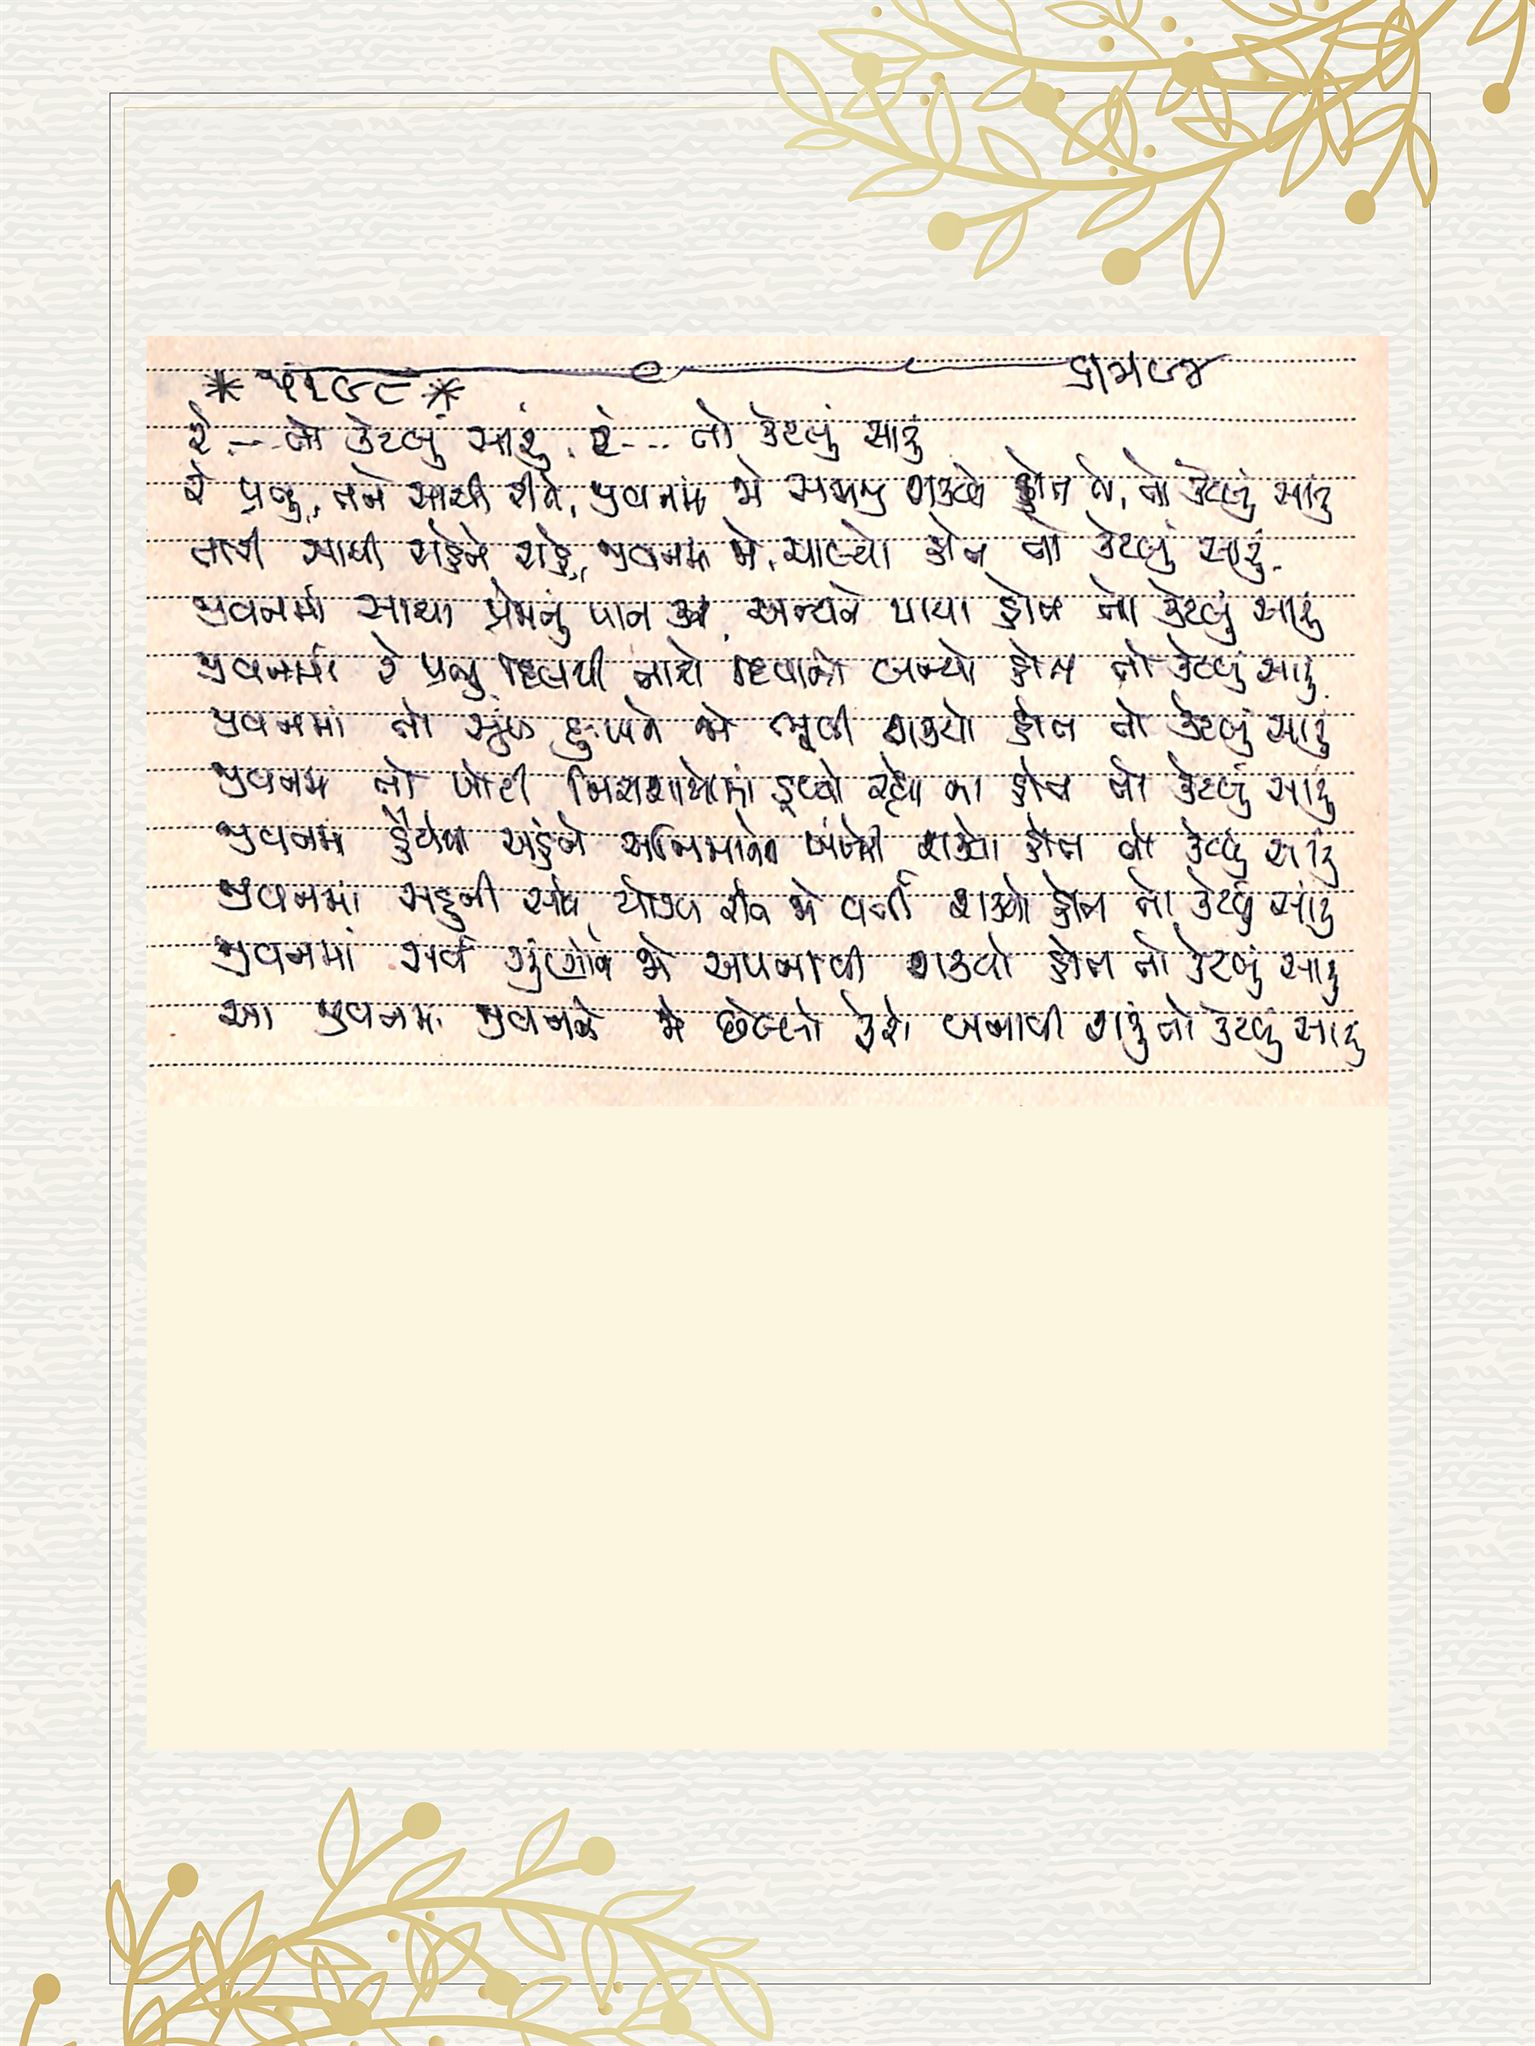 રે --- તો કેટલું સારું, રે --- તો કેટલું સારું
રે પ્રભુ, તને સાચી રીતે, જીવનમાં મેં સમજી શક્યો હોત તે, તો કેટલું સારું
તારી સાચી રાહે, જીવનમાં મેં, ચાલ્યો હોત તો કેટલું સારું.
જીવનમાં સાચા પ્રેમનું પાન અન્યને પાયા હોત તો કેટલું સારું
જીવનમાં રે પ્રભુ દિલથી તારો દિવાનો બન્યો હોત તો કેટલું સારું
જીવનમાં તો સુખ દુઃખને જો ભૂલી શક્યો હોત તો કેટલું સારું
જીવનમાં તો ખોટી નિરાશાઓમાં ડૂબ્યો રહ્યો ના હોત તો કેટલું સારું
જીવનમાં હૈયેથી અહંને અભિમાનને ખંખેરી શક્યો હોત તો કેટલું સારું
જીવનમાં સહુની સાથે યોગ્ય રીતે જો વર્તી શક્યો હોત તો કેટલું સારું
જીવનમાં સર્વ ગુણોને જો અપનાવી શક્યો હોત તો કેટલું સારું
આ જીવનમાં જીવનને જો છેલ્લો ફેરો બનાવી શકું તો કેટલું સારું